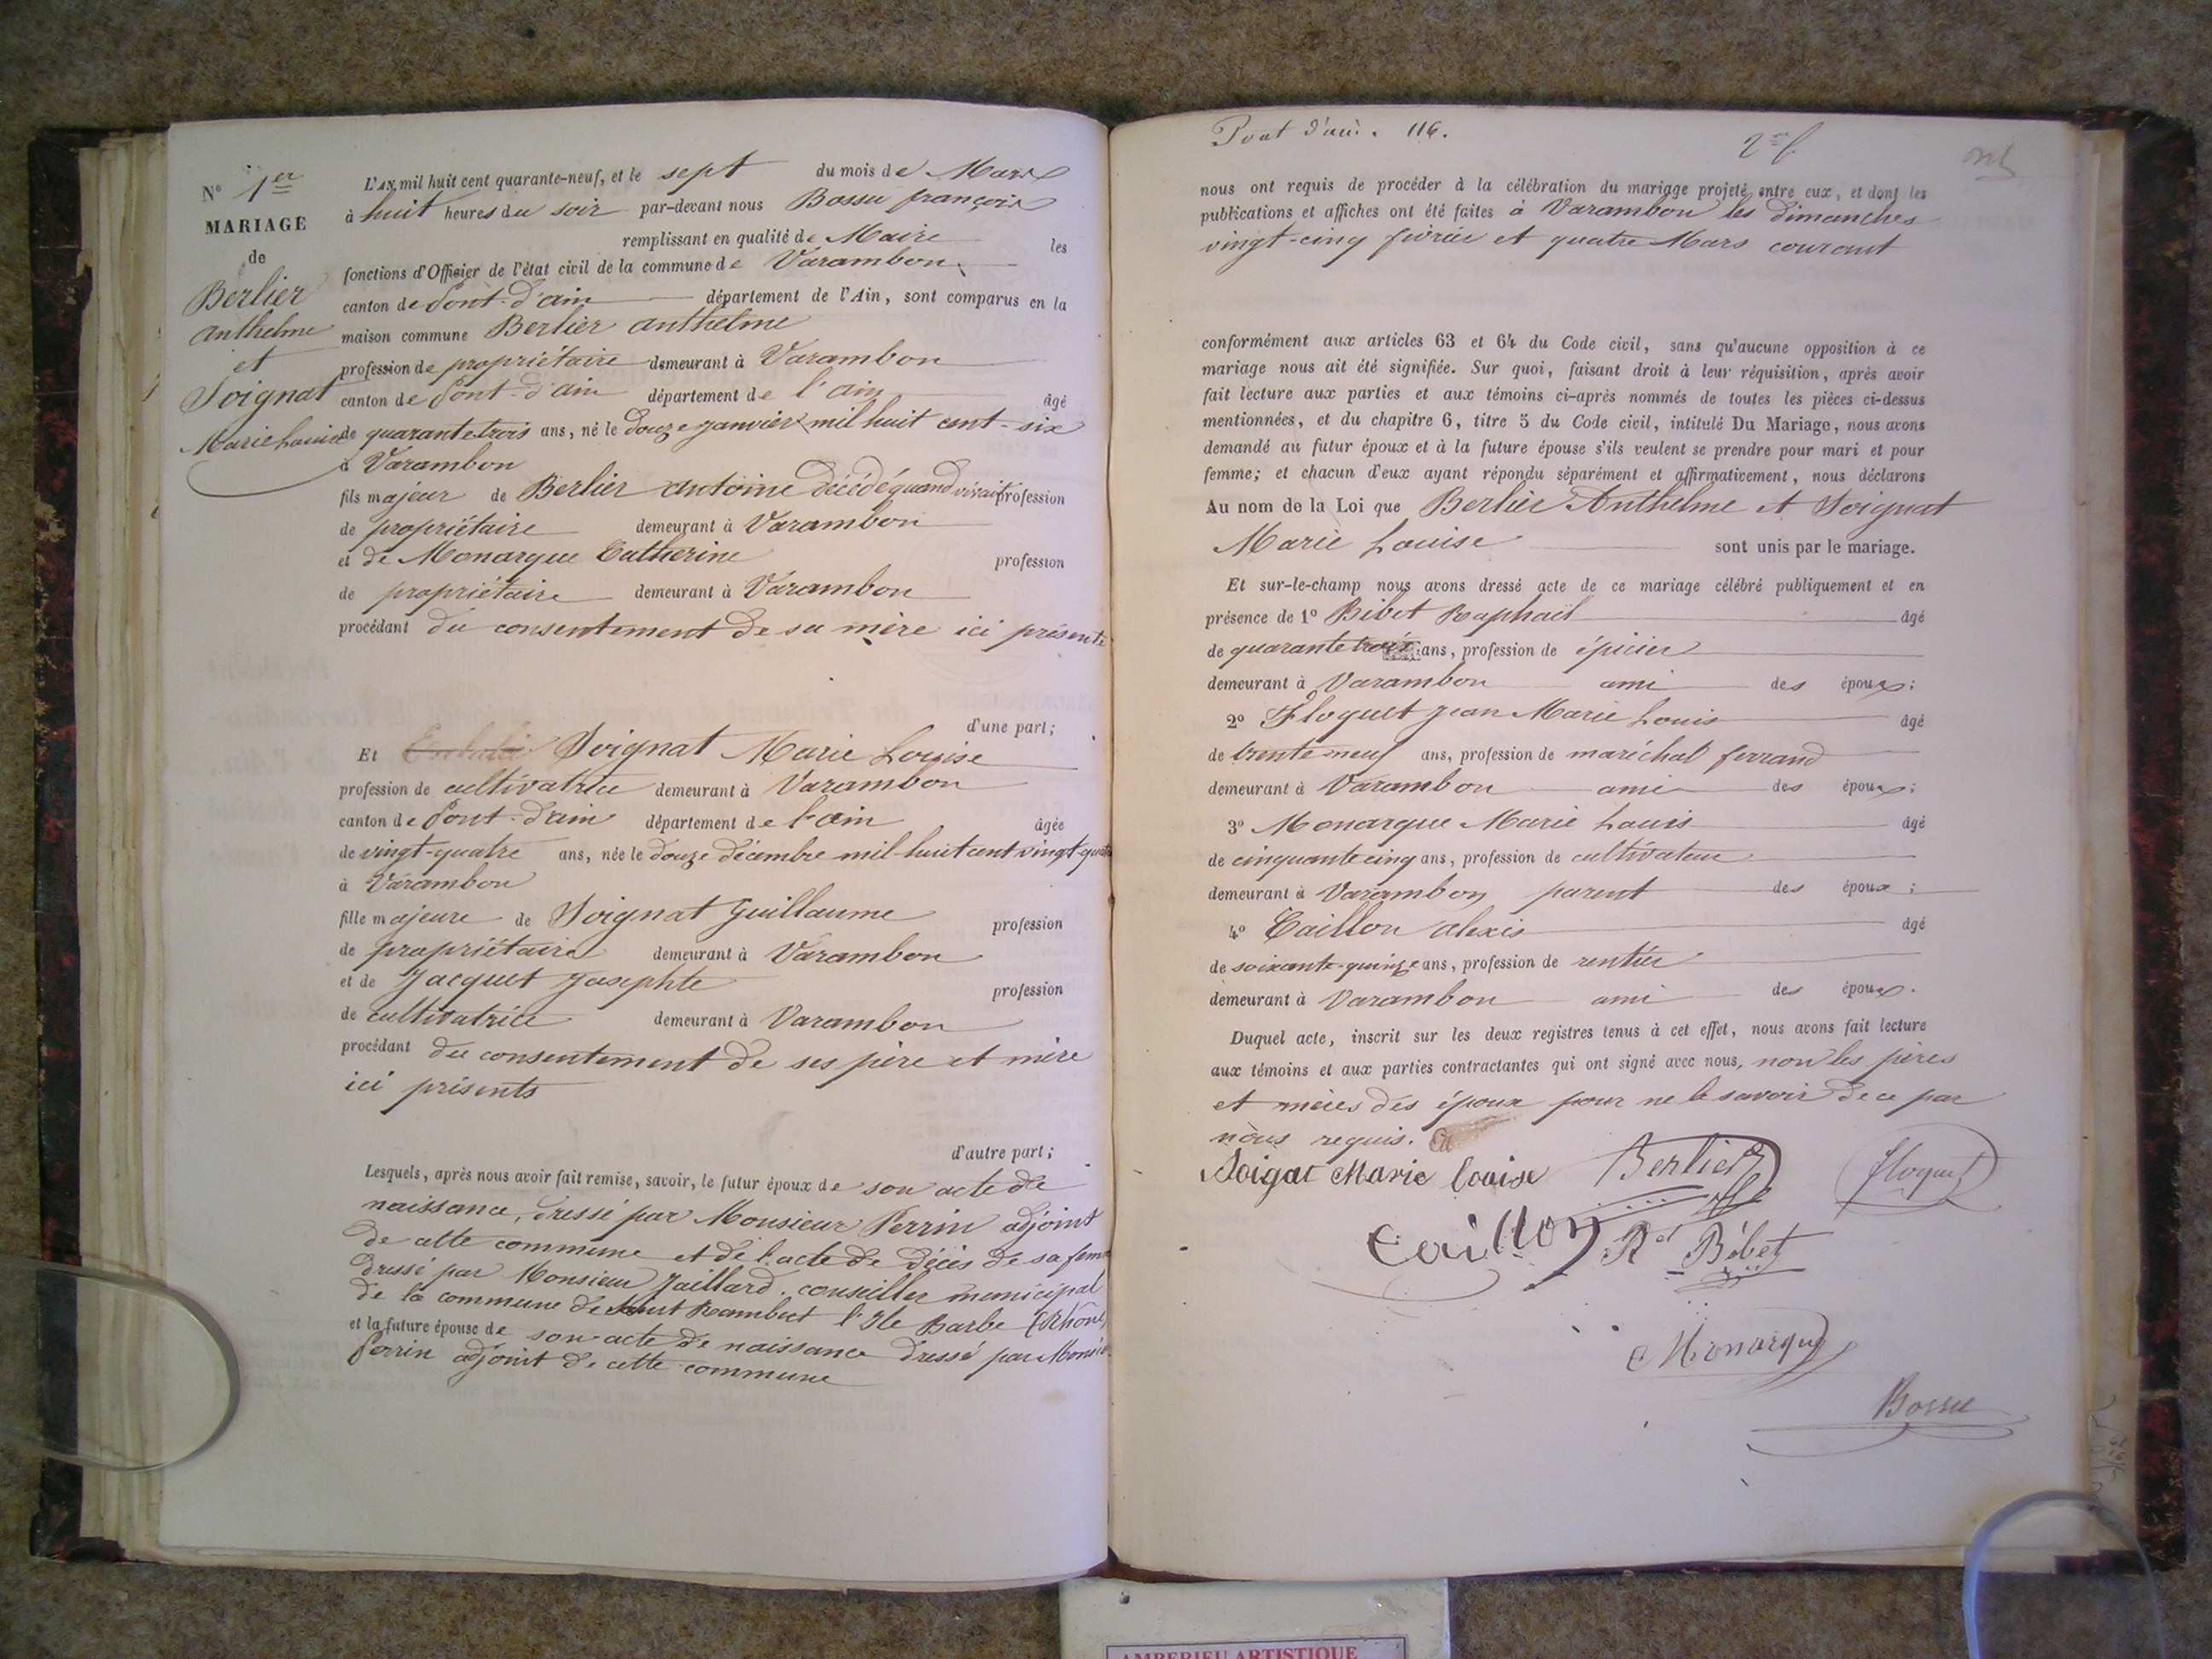 N° 1er
MARIAGE
de
Berlier
Anthelme
et
Soignat
Marie Louise
L'AN mil huit cent quarante-neuf, et le sept du mois de Mars
à huit heures du soir par-devant nous Bossu françois
remplissant en qualité de Maire les
fonctions d'Officier de l'état civil de la commune de Varambon
canton de Pont-d'ain département de l'Ain, sont comparus en la
maison commune Berlier anthelme
profession de propriétaire demeurant à Varambon
canton de Pont-d'ain département de l'ain âgé
de quarante trois ans, né le douze janvier mil huit cent-six
à Varambon
fils majeur de Berlier antoine décédé quand vivait profession
de propriétaire demeurant à Varambon
et de Monarque Catherine profession
de propriétaire demeurant à Varambon
procédant du consentement de sa mère ici présente
d'une part;
Et Soignat Marie Louise
profession de cultivatrice demeurant à Varambon
canton de Pont-d'ain département de l'ain âgée
de vingt-quatre ans, née le douze décembre mil-huit cent vingt-quatre
à Varambon
fille majeure de Soignat Guillaume profession
de propriétaire demeurant à Varambon
et de Jacquet Josephte profession
de cultivatrice demeurant à Varambon
procédant du consentement de ses père et mère
ici présents
d'autre part;
Lesquels, après nous avoir fait remise, savoir, le futur époux de son acte de
naissance, dressé par Monsieur Perrin adjoint
de cette commune et de l'acte de décès de sa femme
dressé par Monsieur Jaillard, conseiller municipal
de la commune de Saint Rambert l'Ile Barbe (Rhône)
et la future épouse de son acte de naissance dressé par Monsieur
Perrin adjoint de cette commune
Pont d'ain. 116.
nous ont requis de procéder à la célébration du mariage projeté entre eux, et dont les
publications et affiches ont été faites à Varambon les dimanches
vingt-cinq février et quatre Mars courant
conformément aux articles 63 et 64 du Code civil, sans qu'aucune opposition à ce
mariage nous ait été signifiée. Sur quoi, faisant droit à leur réquisition, après avoir
fait lecture aux parties et aux témoins ci-après nommés de toutes les pièces ci-dessus
mentionnées, et du chapitre 6, titre 5 du Code civil, intitulé Du Mariage, nous avons
demandé au futur époux et à la future épouse s'ils veulent se prendre pour mari et pour
femme; et chacun d'eux ayant répondu séparément et affirmativement, nous déclarons
Au nom de la Loi que Berlier Anthelme et Soignat
Marie Louise sont unis par le mariage.
Et sur-le-champ nous avons dressé acte de ce mariage célébré publiquement et en
présence de 1° Bibet Raphaël âgé
de quarante trois ans, profession de épicier
demeurant à Varambon ami des époux;
2° Floquet Jean Marie Louis âgé
de trente neuf ans, profession de maréchal ferrand
demeurant à Varambon ami des époux;
3° Monarque Marie Louis âgé
de cinquante cinq ans, profession de cultivateur
demeurant à Varambon parent des époux;
4° Caillon alexis âgé
de soixante-quinze ans, profession de rentier
demeurant à Varambon ami des époux.
Duquel acte, inscrit sur les deux registres tenus à cet effet, nous avons fait lecture
aux témoins et aux parties contractantes qui ont signé avec nous, non les pères
et mères des époux pour ne le savoir de ce par
nous requis.
Soigat Marie louise Berlier Floquet
Caillon Rd Bibet
Monarque
Bossu
AMBERIEU ARTISTIQUE